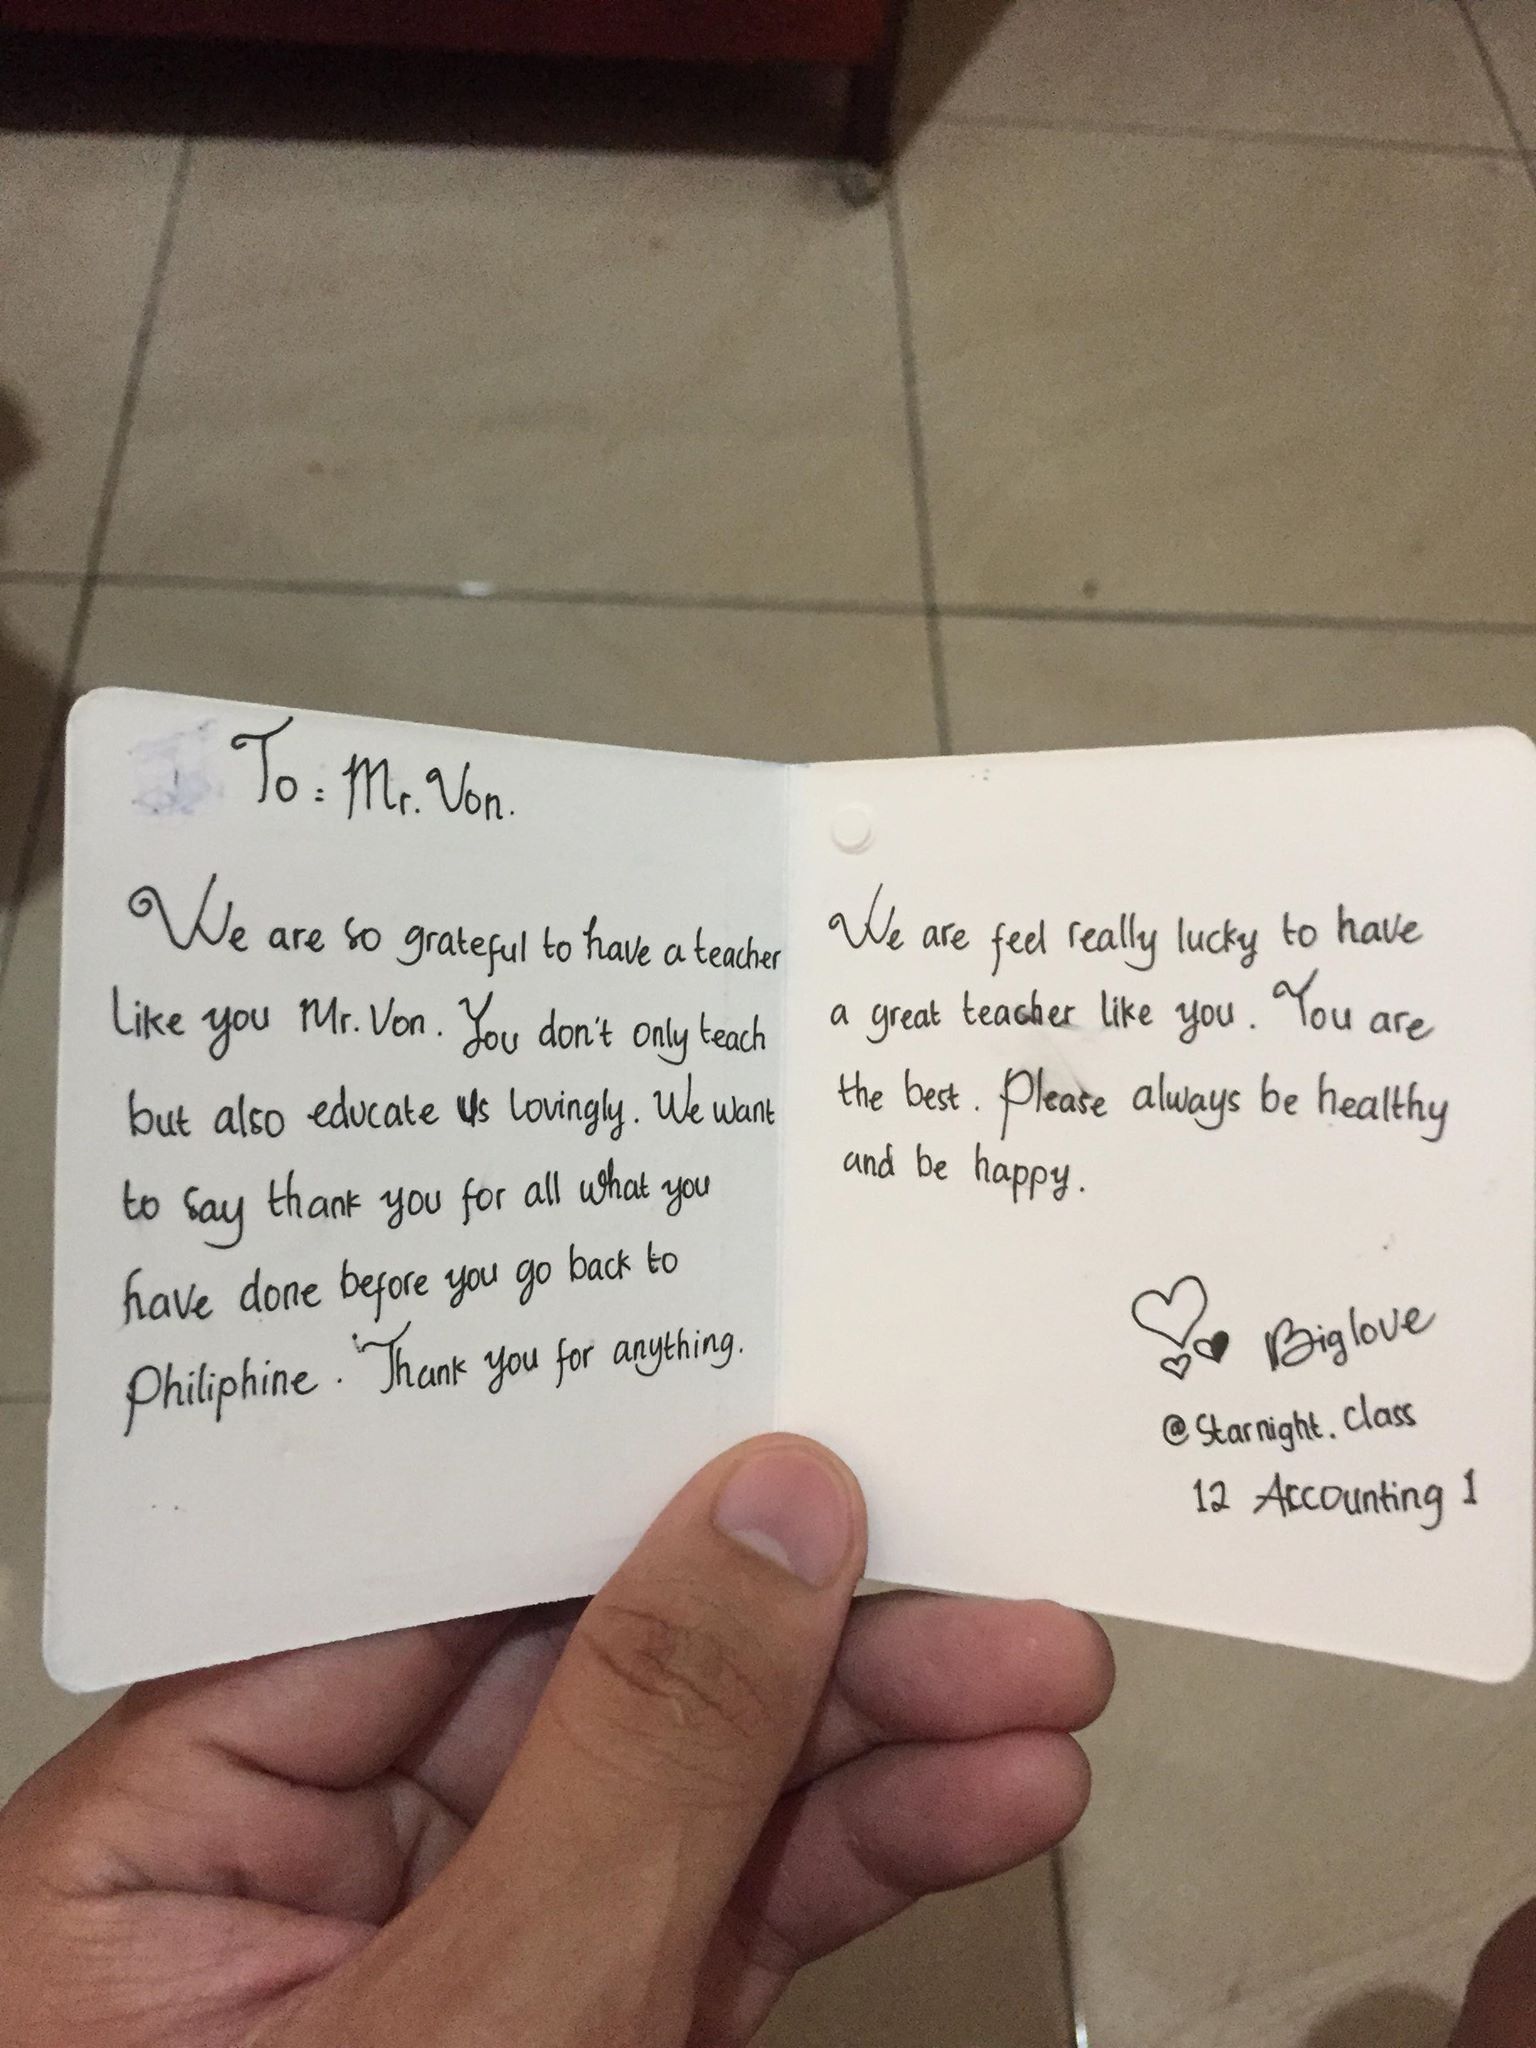 To : Mr. Von.
We are so grateful to have a teacher
like you Mr. Von. You don't only teach
but also educate us lovingly. We want
to say thank you for all what you
have done before you go back to
Philiphine. Thank you for anything.
We are feel really lucky to have
a great teacher like you. You are
the best. Please always be healthy
and be happy.
Big love
@Starnight.class
12 Accounting 1